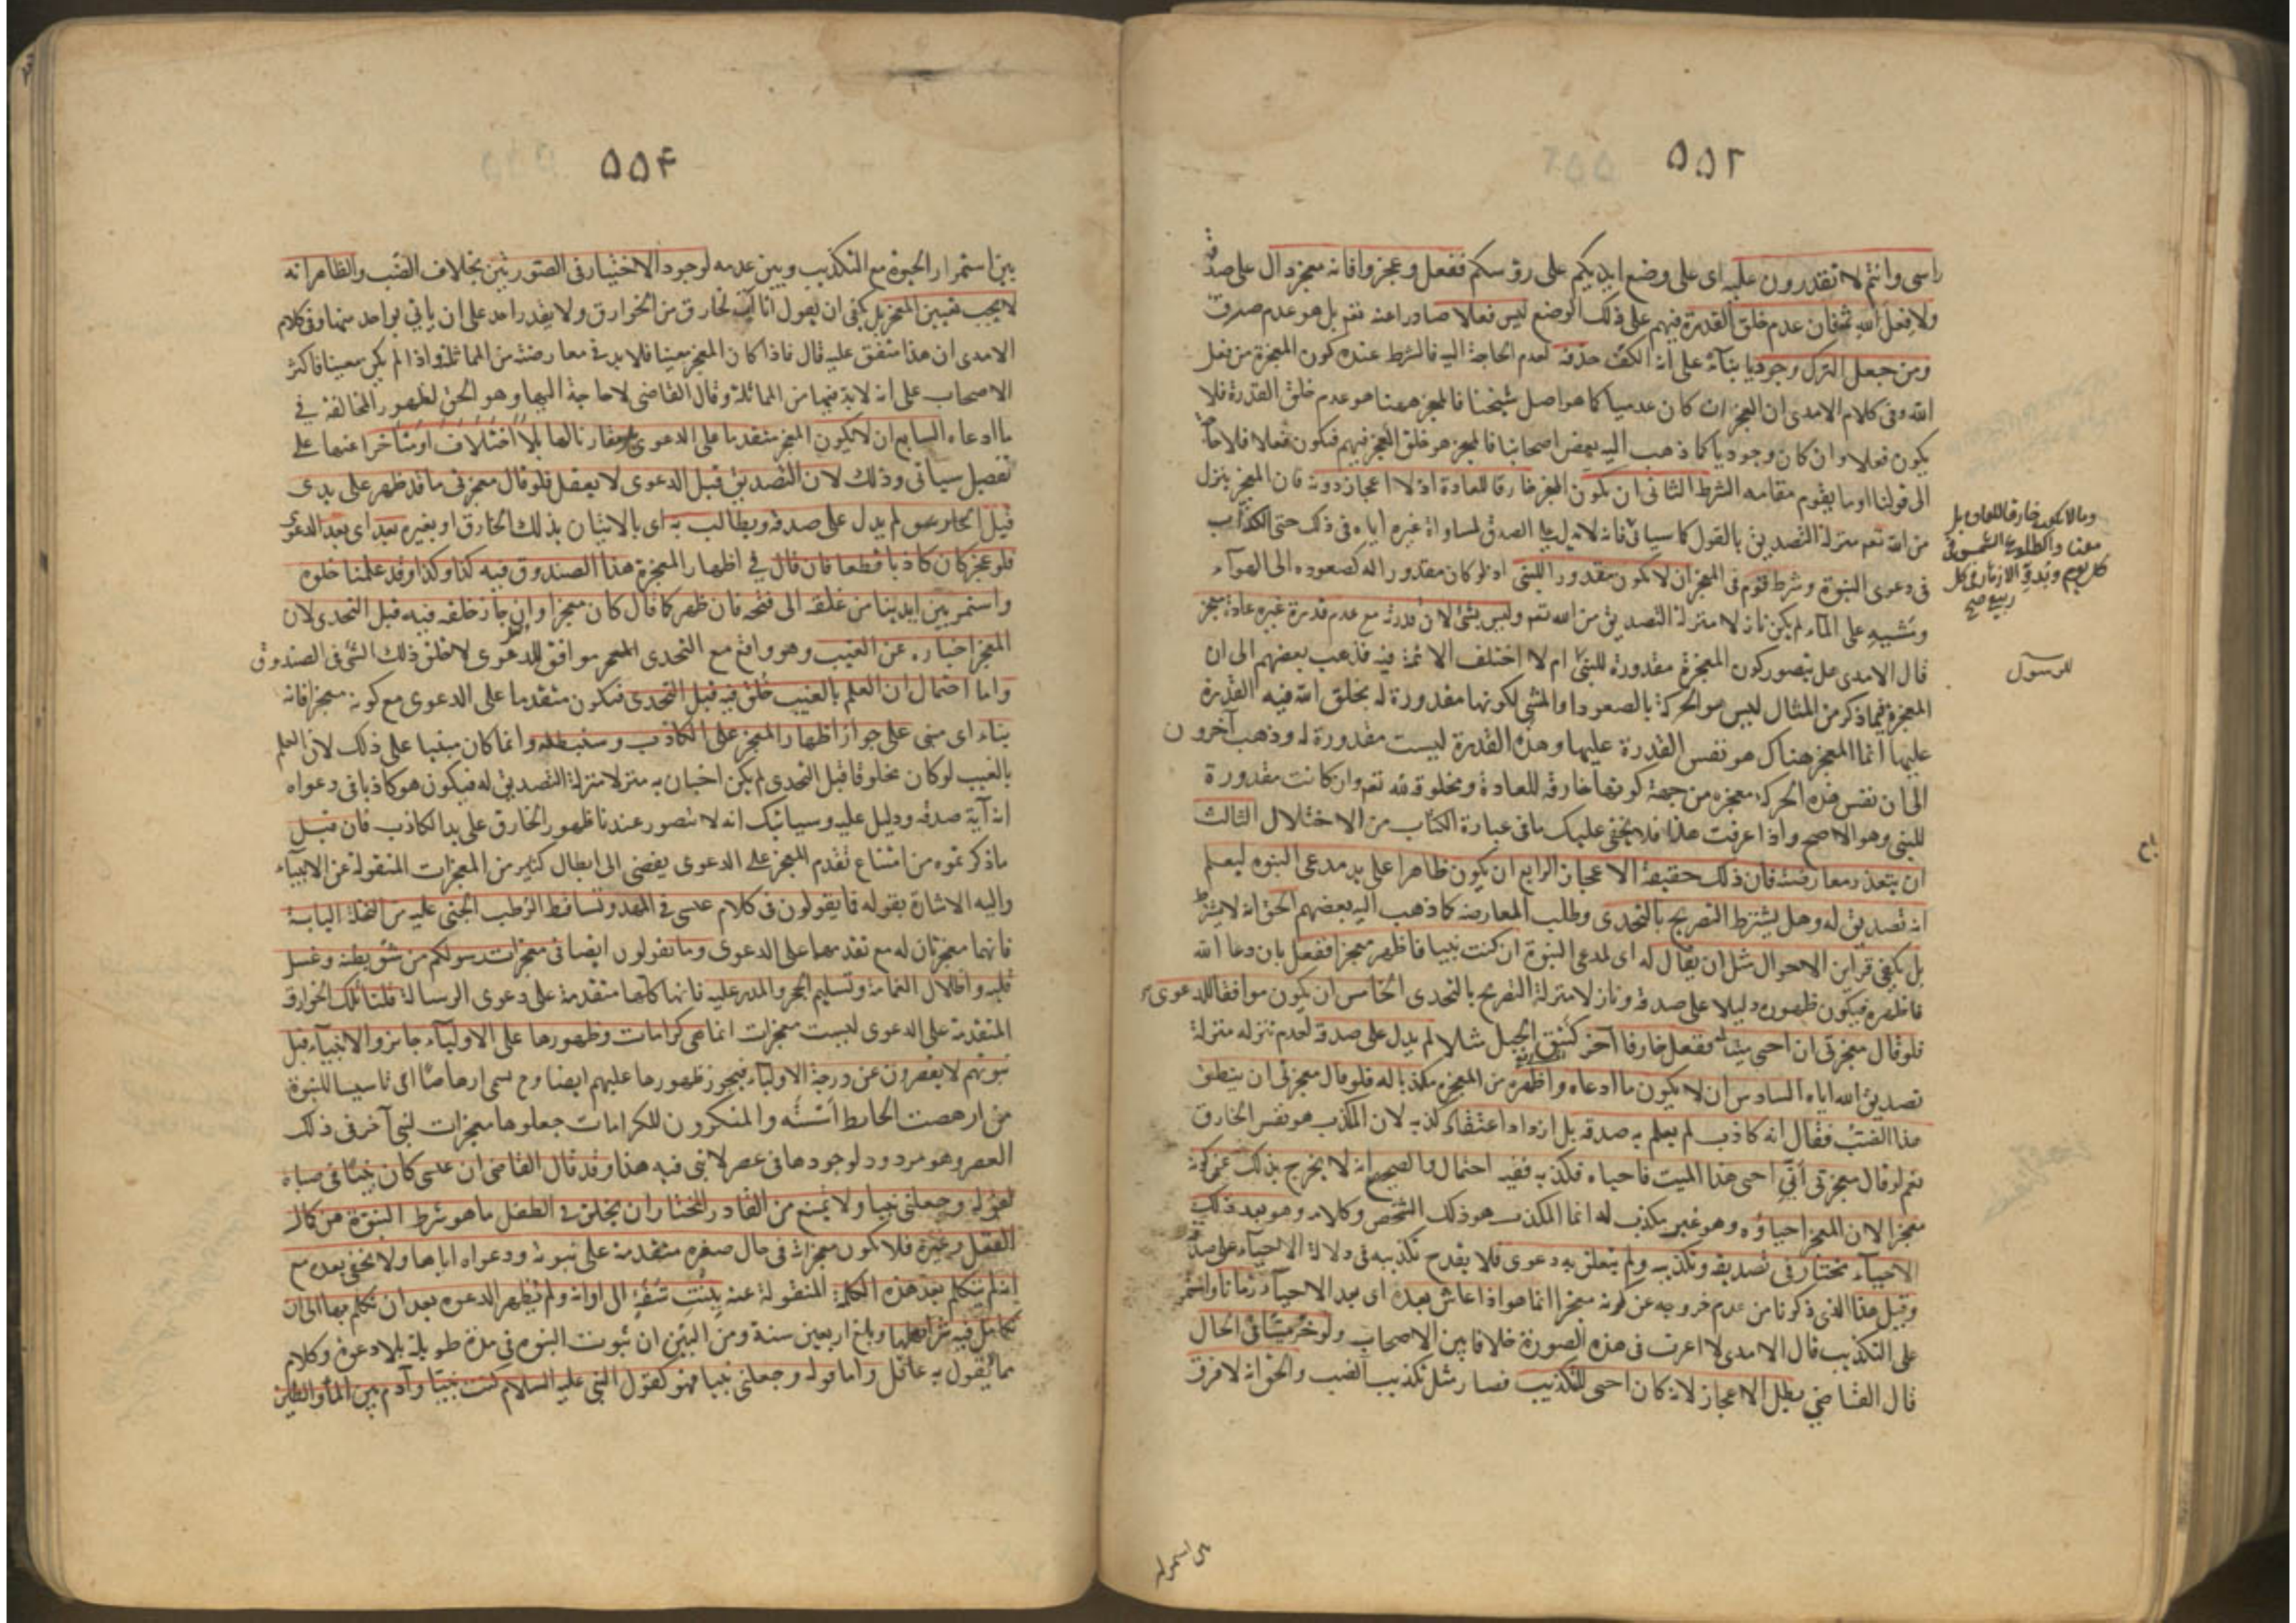 ۵۵۲
راسى وانتم لا تقدرون عليه اى على وضع ايديكم على رؤسكم ففعل وعجزوا فانه معجز دال على صدقه
ولا فعل لله ثمه فان عدم خلق القدرة فيهم على ذلك الوضع ليس فعلا صادرا عنه تعم بل هو عدم صرف
ومن جعل الترك وجوديا بناء على انه الكف حذفه لعدم الحاجة اليه فالشرط عنده كون المعجزة من فعل
الله وفى كلام الامدى ان العجز ان كان عدميا كما هو اصل شيخنا فالمعجز ههنا هو عدم خلق القدرة فلا
يكون فعلا وان كان وجوديا كما ذهب اليه بعض اصحابنا فالمعجز هو خلق العجز فيهم فيكون فعلا فلا حاجة
الى قولنا او ما يقوم مقامه الشرط الثانى ان يكون المعجز خارقا للعادة اذ لا اعجاز دونه فان المعجز ينزل
من الله تعم منزلة التصديق بالقول كما سياتى فانه لا يدل على الصدق لمساواة غيره اياه فى ذلك حتى الكذاب
فى دعوى النبوة وشرط قوم فى المعجز ان لا يكون مقدورا للنبى اذ لو كان مقدورا له كصعوده الى الهواء
ومشيه على الماء لم يكن نازلا منزلة التصديق من الله تعم وليس بشئ لان قدرته مع عدم قدرة غيره عادة معجز
قال الامدى هل يتصور كون المعجزة مقدورة للنبى ام لا اختلف الائمة فيه فذهب بعضهم الى ان
المعجزة فيما ذكر من المثال ليس هو الحركة بالصعود او المشى لكونها مقدورة له بخلق الله فيه القدرة
عليها انما المعجز هناك هو نفس القدرة عليها وهذه القدرة ليست مقدورة له وذهب آخرون
الى ان نفس هذه الحركة معجزه من جهة كونها خارقة للعادة ومخلوقة لله تعم وان كانت مقدورة
للنبى وهو الاصح واذا عرفت هذا فلا يخفى عليك ما فى عبارة الكتاب من الاختلال الثالث
ان يتعذر معارضته فان ذلك حقيقة الاعجاز الرابع ان يكون ظاهرا على يد مدعى النبوه ليعلم
انه تصديق له وهل يشترط التصريح بالتحدى وطلب المعارضه كما ذهب اليه بعضهم الحق انه لا يشترط
بل يكفى قراين الاحوال مثل ان يقال له اى لمدعى النبوة ان كنت نبيا فاظهر معجزا ففعل بان دعا الله
فاظهره فيكون ظهوره دليلا على صدقه ونازلا منزلة التصريح بالتحدى الخامس ان يكون موافقا للدعوى
فلو قال معجزتى ان احيى ميتا ففعل خارقا آخر كنتق الجبل مثلا لم يدل على صدقه لعدم تنزله منزلة
تصديق الله اياه السادس ان لا يكون ما ادعاه واظهره من المعجزه مكذبا له فلو قال معجزتى ان ينطق
هذا الضب فقال انه كاذب لم يعلم به صدقه بل ازداد اعتقاد كذبه لان المكذب هو نفس الخارق
نعم لو قال معجزتى ان احيى هذا الميت فاحياه فكذبه ففيه احتمال والصحيح انه لا يخرج بذلك عن كونه
معجزا لان المعجز احياؤه وهو غير مكذب له انما المكذب هو ذلك الشخص وكلامه وهو بعد ذلك
الاحياء مختار فى تصديقه وتكذيبه ولم يتعلق به دعوى فلا يقدح تكذيبه فى دلالة الاحياء على صدقه
وقيل هذا الذى ذكرنا من عدم خروجه عن كونه معجزا انما هو اذا عاش بعده اى بعد الاحياء زمانا واستمر
على التكذيب قال الامدى لا اعرف فى هذه الصورة خلافا بين الاصحاب ولو خر ميتا فى الحال
قال القاضى بطل الاعجاز لانه كان احيى للتكذيب فصار مثل تكذيب الضب والحق انه لا فرق
وما لا يكون خارقا للعادة بل
معتادا كطلوع الشمس فى
كل يوم وبدو الازهار فى كل
ربيع صح
للرسول
بين استمرار
۵۵۴
بين استمرار الحيوة مع التكذيب وبين عدمه لوجود الاختيار فى الصورتين بخلاف الضب والظاهر انه
لا يجب تعيين المعجز بل يكفى ان يقول انا آت بخارق من الخوارق ولا يقدر احد على ان ياتى بواحد منها وفى كلام
الامدى ان هذا متفق عليه قال فاذا كان المعجز معينا فلا بد فى معارضته من المماثلة واذا لم يكن معينا فاكثر
الاصحاب على انه لا بد فيها من المماثلة وقال القاضى لا حاجة اليها وهو الحق لظهور المخالفة فى
ما ادعاه السابع ان لا يكون المعجز متقدما على الدعوى بل مقارنا لها بلا اختلاف او متأخرا عنها على
تفصيل سياتى وذلك لان التصديق قبل الدعوى لا يعقل فلو قال معجزتى ما قد ظهر على يدى
قبل لم يدل على صدقه ويطالب به اى بالاتيان بذلك الخارق او بغيره بعد اى بعد الدعوى
فلو عجز كان كاذبا قطعا فان قال فى اظهار المعجزة هذا الصندوق فيه كذا وكذا وقد علمنا خلوه
واستمر بين ايدينا من غلقه الى فتحه فان ظهر كما قال كان معجزا وان جاز خلقه فيه قبل التحدى لان
المعجز اخباره عن الغيب وهو واقع مع التحدى موافق للدعوى لا خلق ذلك الشئ فى الصندوق
واما احتمال ان العلم بالغيب خلق فيه قبل التحدى فيكون متقدما على الدعوى مع كونه معجزا فانه
بناء اى مبنى على جواز اظهار المعجز على الكاذب وسنبطله وانما كان مبنيا على ذلك لان العلم
بالغيب لو كان مخلوقا قبل التحدى لم يكن اخباره به منزلا منزلة التصديق له فيكون هو كاذبا فى دعواه
انه آية صدقه ودليل عليه وسياتيك انه لا يتصور عندنا ظهور الخارق على يد الكاذب فان قيل
ما ذكرتموه من امتناع تقدم المعجز على الدعوى يفضى الى ابطال كثير من المعجزات المنقولة عن الانبياء
واليه الاشارة بقوله فما يقولون فى كلام عيسى فى المهد وتساقط الرطب الجنى عليه من النخلة اليابسة
فانهما معجزتان له مع تقدمهما على الدعوى وما تقولون ايضا فى معجزات رسولكم من شق بطنه وغسل
قلبه واظلال الغمامة وتسليم الحجر والمدر عليه فانها كلها متقدمة على دعوى الرسالة قلنا تلك الخوارق
المتقدمة على الدعوى ليست معجزات انما هى كرامات وظهورها على الاولياء جايز والانبياء قبل
نبوتهم لا يقصرون عن درجة الاولياء فيجوز ظهورها عليهم ايضا وح تسمى ارهاصا اى تاسيسا للنبوة
من ارهصت الحايط اسسته والمنكرون للكرامات جعلوها معجزات لنبى آخر فى ذلك
العصر وهو مردود لوجودها فى عصر لا نبى فيه هذا وقد قال القاضى ان عيسى كان نبيا فى صباه
لقوله وجعلنى نبيا ولا يمتنع من القادر المختار ان يخلق فى الطفل ما هو شرط النبوة من كمال
العقل وغيره فلا يكون معجزاته فى حال صغره متقدمة على نبوته ودعواه اياها ولا يخفى بعده مع
انه لم يتكلم بعد هذه الكلمة المنقولة عنه ببنت شفة الى اوانه ولم يظهر الدعوه بعد ان تكلم بها الى ان
تكامل فيه شرايطها وبلغ اربعين سنة ومن البين ان ثبوت النبوه فى مدة طويلة بلا دعوة وكلام
مما يقول به عاقل واما قوله وجعلنى نبيا فهو كقول النبى عليه السلام كنت نبيا وآدم بين الماء والطين